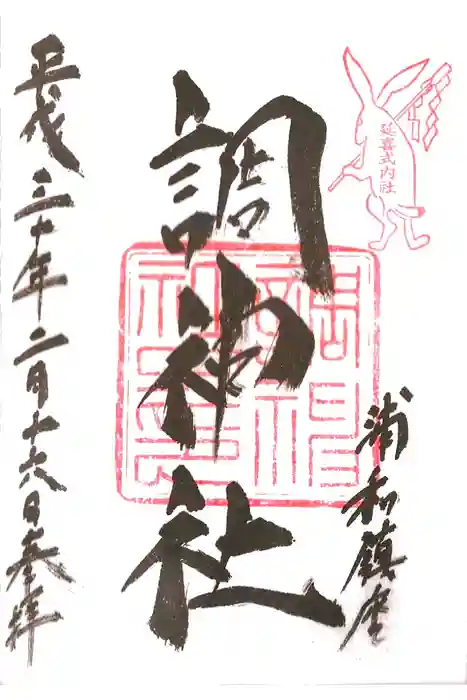 延喜式内社
浦和鎮座
調神社
平成三十年二月十六日参拝